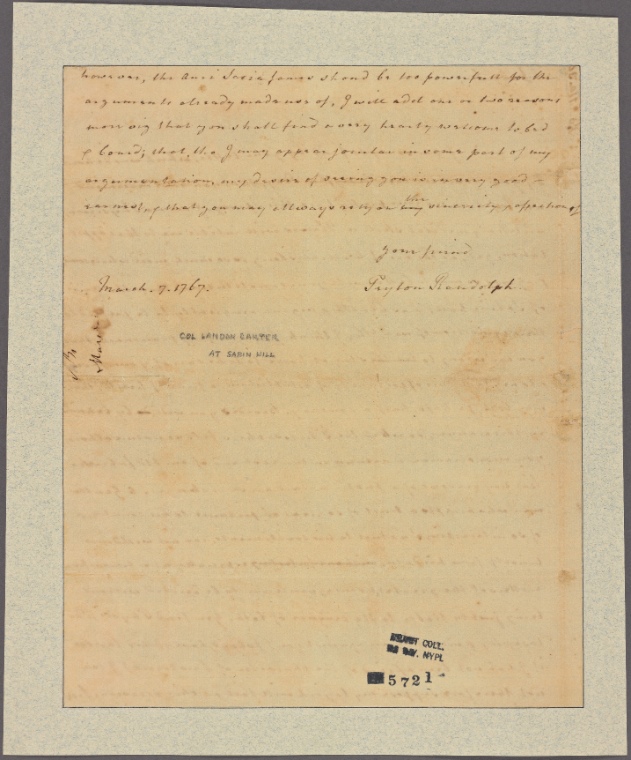 however, the shoud be too powerfull for the
arguments already made use of, I will add one or two reasons
more viz that you shall find a very hearty welcome to bed
& board; that, tho I may appear jocular in some part of my
argumentation, my desire of seeing you is in very good
earnest, & that you may allways rely on the sincerity & affection of
your friend
March. 7. 1767. Peyton Randolph
March
COL LANDON CARTER
AT SABIN HILL
EMMET COLL.
MS DIV. NYPL
5721